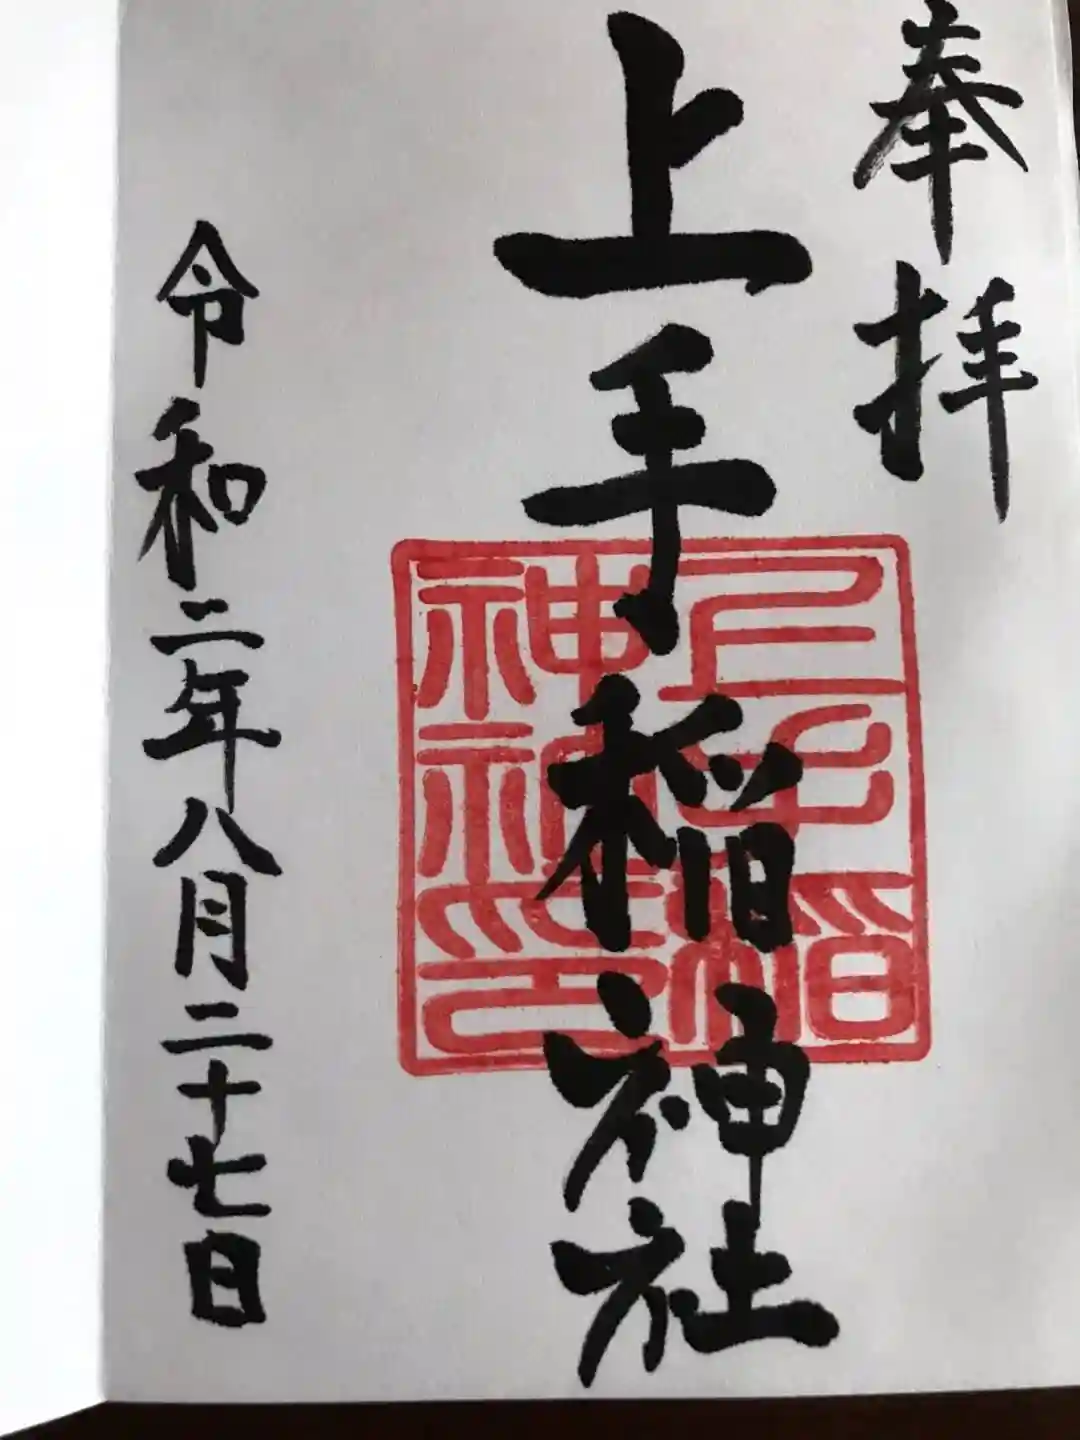 奉拝
上手稲神社
上手稲神社印
令和二年八月二十七日